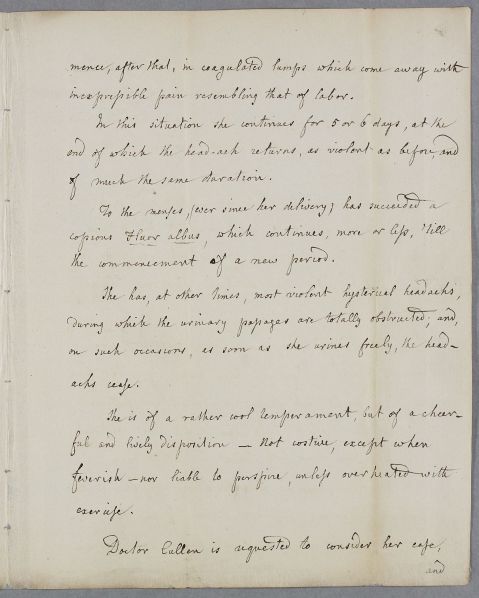 mence, after that, in coagulated lumps which come away with
inexpressible pain resembling that of labor.
In this situation she continues for 5 or 6 days, at the
end of which the head-ach returns, as violent as before, and
of much the same duration.
To the menses, (ever since her delivery) has succeeded a
copious Fluor albus, which continues, more or less, 'till
the commencement of a new period.
She has, at other times, most violent hysterical headachs,
during which the urinary passages are totally obstructed; and,
on such occasions, as soon as she urines freely, the head-
achs cease.
She is of a rather cool temperament, but of a cheer-
ful and lively disposition — Not costive, except when
feverish — nor liable to perspire, unless overheated with
exercise.
Doctor Cullen is requested to consider her case,
and